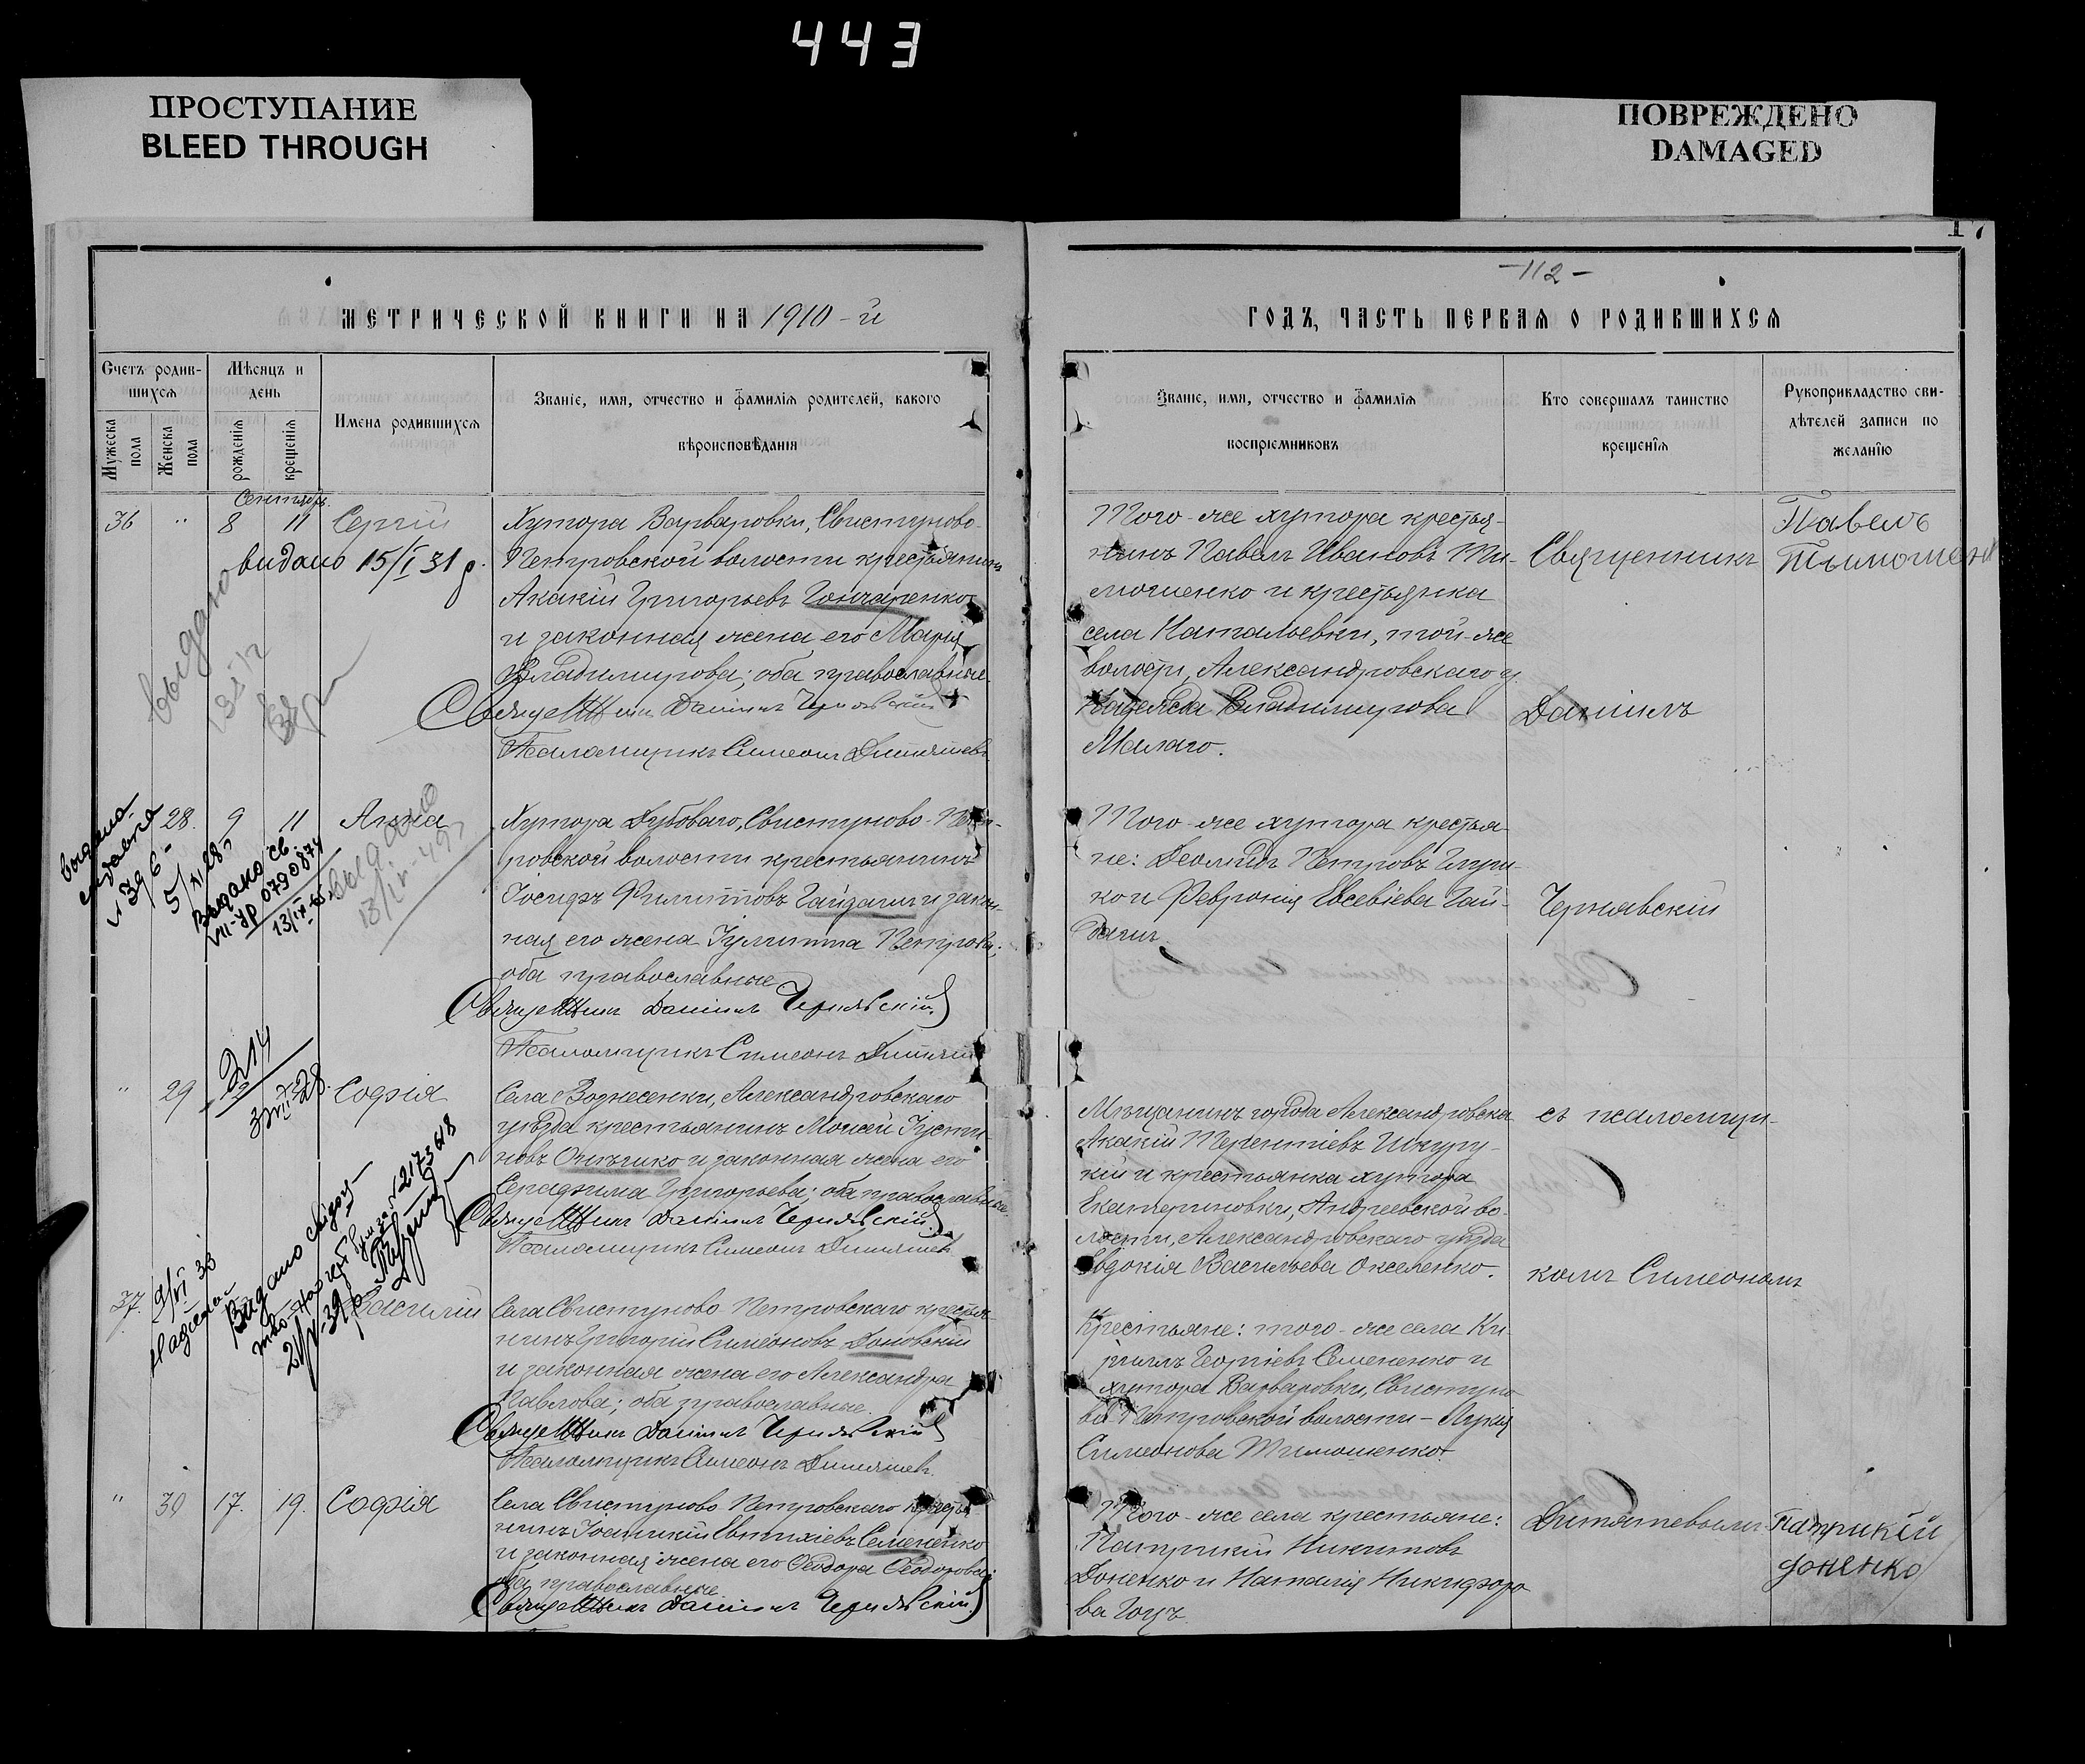 443
ПРОСТУПАНИЕ
BLEED THROUGH
ПОВРЕЖДЕНО
DAMAGED
17
-112-
МЕТРИЧЕСКОЙ КНИГИ НА 1910-й
ГОДЪ, ЧАСТЬ ПЕРВАЯ О РОДИВШИХСЯ
Счетъ родив-
шихся
Мужеска пола
Женска пола
Мѣсяцъ и
день
рожденія
крещенія
Имена родившихся
Званіе, имя, отчество и фамилія родителей, какого
вѣроисповѣданія
Званіе, имя, отчество и фамилія
воспріемниковъ
Кто совершалъ таинство
крещенія
Рукоприкладство сви-
дѣтелей записи по
желанію
Сентябрь
36 " 8 11 Сергій
видано 15/I 31 р.
выдано
Хутора Варваровки, Свистуново-
Петровской волости крестьянинъ
Акакій Григорьевъ Гончаренко
и законная жена его Марія
Владимирова; оба православные.
Священникъ Даніилъ Чернявскій
Псаломщикъ Симеонъ Дитятевъ
Того-же хутора крестья-
нинъ Павелъ Ивановъ Ти-
мошенко и крестьянка
села Натальевки, той-же
волости, Александровскаго у.
Надежда Владимирова
Малаго.
Священникъ
Даніилъ
Павелъ
28. 9 11 Анна
выдано
Выдано св.
VII-УР 0790874
Хутора Дубоваго, Свистуново-Пет-
ровской волости крестьянинъ
Іосифъ Филипповъ Гайдашъ и закон-
ная его жена Іулитта Петрова;
оба православные
Священникъ Даніилъ Чернявскій
Псаломщикъ Симеонъ
Того-же хутора крестья-
не: Леонидъ Петровъ
ко и Февронія Евсевіева Гай-
дашъ
Чернявскій
" 29 Софія
214
Села Вознесенки, Александровскаго
уѣзда крестьянинъ Моисей Іусти-
новъ и законная жена его
Серафима Григорьева; оба православные.
Священникъ Даніилъ Чернявскій
Псаломщикъ Симеонъ Дитятевъ
Мѣщанинъ города Александровска
Акакій Терентіевъ Шкуру-
кій и крестьянка хутора
Екатериновки, Андреевской во-
лости, Александровскаго уѣзда
Евдокія Васильева Окселенко.
съ псаломщи-
комъ Симеономъ
37. Василій
Видано
21/V-39 р.
Села Свистуново Петровскаго крестья-
нинъ Григорій Симеоновъ Доновскій
и законная жена его Александра
Павлова; оба православные.
Священникъ Даніилъ Чернявскій
Псаломщикъ Симеонъ Дитятевъ.
Крестьяне: того-же села Ки-
риллъ Георгіевъ Семененко и
хутора Варваровки, Свистуно-
во Петровской волости – Лукія
Симеонова Тимошенко.
" 30 17. 19. Софія
Села Свистуново Петровскаго крестья-
нинъ Іоанникій Евтихіевъ Семененко
и законная жена его Феодора Феодорова;
оба православные.
Священникъ Даніилъ Чернявскій
Того-же села крестьяне:
Патрикій Никитовъ
Доненко и Наталія Никифоро
ва Гоцъ.
Дитятевымъ
Патрикій
Доненко